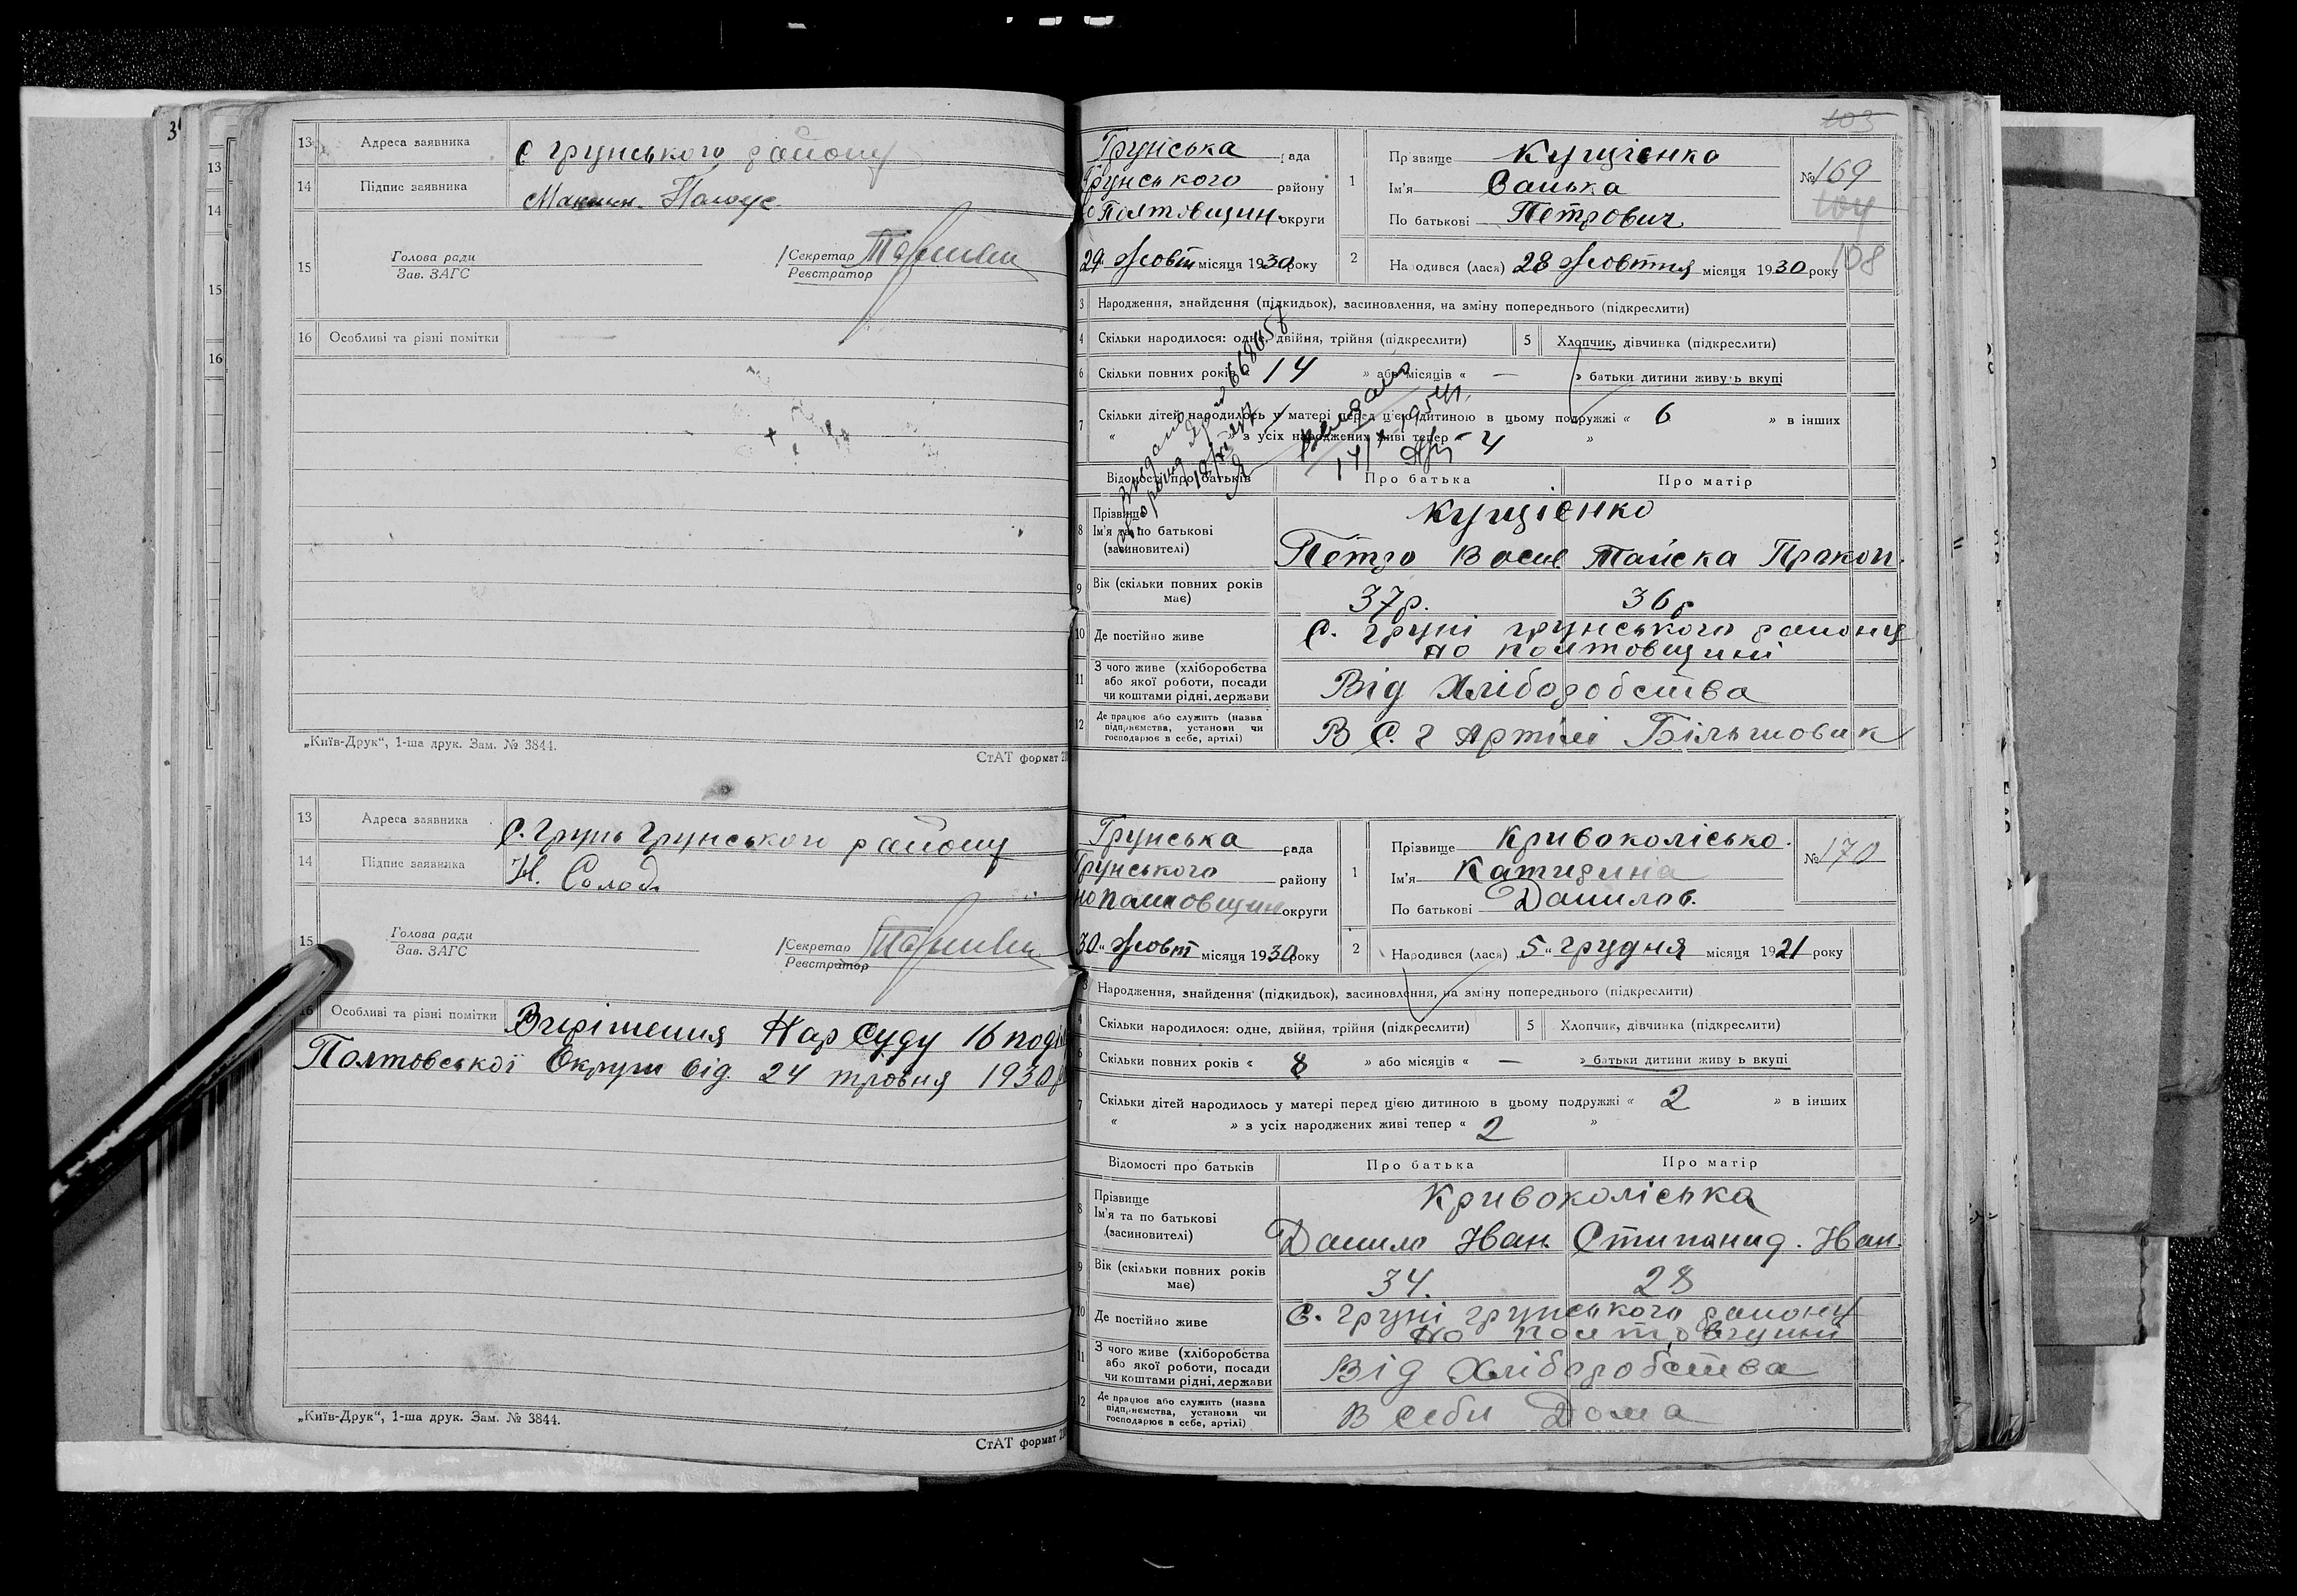 3
13
14
15
16
13 Адреса заявника С Грунського району
14 Підпис заявника
15 Голова ради Зав. ЗАГС Секретар Реєстратор
16 Особливі та різні помітки
„Київ-Друк“, 1-ша друк. Зам. № 3844.
СтАТ формат
13 Адреса заявника С. Грунь Грунського району
14 Підпис заявника Н. Солод
15 Голова ради Зав. ЗАГС Секретар Реєстратор
16 Особливі та різні помітки Вирішення Нар Суду 16 поділ
Полтовської Округи від 24 тровня 1930 р
„Київ-Друк“, 1-ша друк. Зам. № 3844.
СтАТ формат
103
Грунська рада
Грунського району
Полтовщин. округи
29 Жовт місяця 1930 року
1 Прізвище Кущіенко
Ім'я Санька
По батькові Петрович
№ 169
104
108
2 Народився (лася) 28 Жовтня місяця 1930 року
3 Народження, знайдення (підкидьок), засиновлення, на зміну попереднього (підкреслити)
4 Скільки народилося: одне, двійня, трійня (підкреслити) 5 Хлопчик, дівчинка (підкреслити)
6 Скільки повних років 14 » або місяців « — » батьки дитини живуть вкупі
7 Скільки дітей народилось у матері перед цією дитиною в цьому подружжі « 6 » в інших
« » з усіх народжених живі тепер « 4 »
Відомості про батьків Про батька Про матір
8 Прізвище Кущіенко
Ім'я та по батькові
(засиновителі) Петро Васил Тайска Пракоп.
9 Вік (скільки повних років має) 37р. 36р
10 Де постійно живе С. Груні Грунського району
но полтовщині
11 З чого живе (хліборобства
або якої роботи, посади
чи коштами рідні, держави Від Хліборобства
12 Де працює або служить (назва
підприємства, установи чи
господарює в себе, артілі) В С. Г Артілі Більшовик
Грунська рада
Грунського району
но полтовщині округи
30 „ Жовт місяця 1930 року
1 Прізвище Кривоколісько.
Ім'я Катирина
По батькові Данилов.
№ 170
2 Народився (лася) „5“ грудня місяця 1921 року
3 Народження, знайдення (підкидьок), засиновлення, на зміну попереднього (підкреслити)
4 Скільки народилося: одне, двійня, трійня (підкреслити) 5 Хлопчик, дівчинка (підкреслити)
6 Скільки повних років « 8 » або місяців « — » батьки дитини живуть вкупі
7 Скільки дітей народилось у матері перед цією дитиною в цьому подружжі « 2 » в інших
« » з усіх народжених живі тепер « 2 »
Відомості про батьків Про батька Про матір
8 Прізвище Кривоколіська
Ім'я та по батькові
(засиновителі) Данило Іван. Стипанид. Іван.
9 Вік (скільки повних років має) 34. 28
10 Де постійно живе С. Груні Грунського району
но полтовщині
11 З чого живе (хліборобства
або якої роботи, посади
чи коштами рідні, держави Від Хліборобства
12 Де працює або служить (назва
підприємства, установи чи
господарює в себе, артілі) В себи Дома